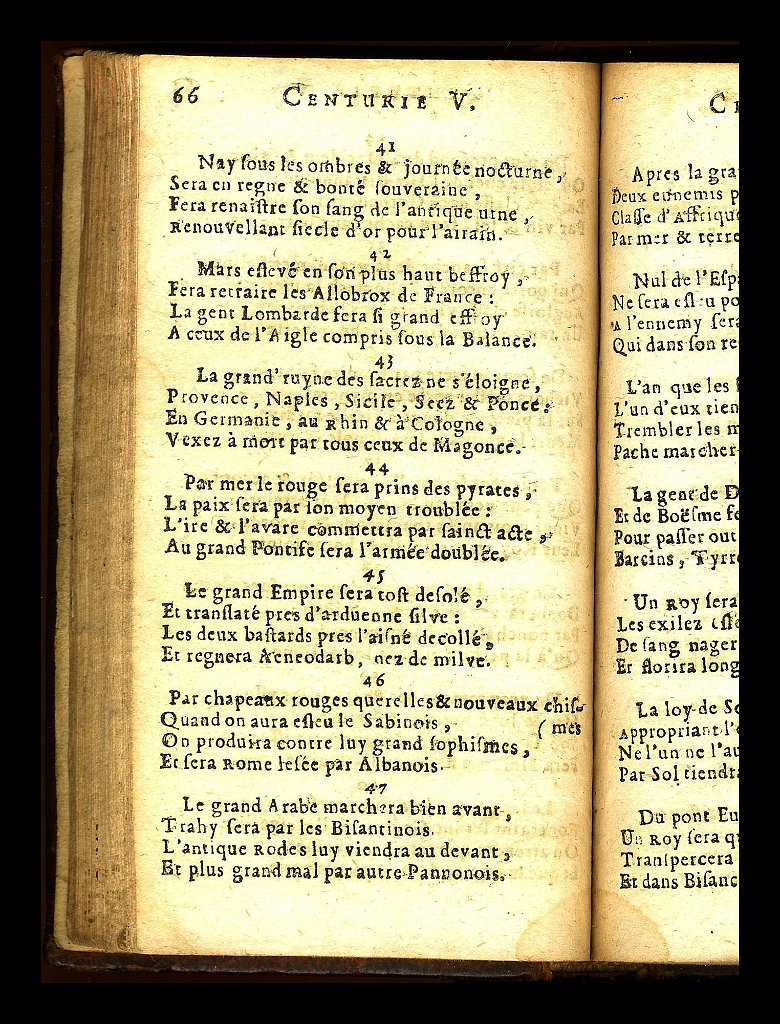 66 CENTURIE V.
41
Nay ſous les ombres & journée nocturne,
Sera en regne & bonté ſouveraine,
Fera renaiſtre ſon ſang de l'antique urne,
Renouvellant ſiecle d'or pour l'airain.
42
Mars eſlevé en ſon plus haut beffroy,
Fera retraire les Allobrox de France:
La gent Lombarde fera ſi grand effroy
A ceux de l'Aigle compris ſous la Balance.
43
La grand' ruyne des ſacrez ne s'éloigne,
Provence, Naples, Sicile, Seez & Ponce:
En Germanie, au Rhin & à Cologne,
Vexez à mort par tous ceux de Magonce.
44
Par mer le rouge ſera prins des pyrates,
La paix ſera par ſon moyen troublée:
L'ire & l'avare commettra par ſainct acte,
Au grand Pontife ſera l'armée doublée.
45
Le grand Empire ſera toſt deſolé,
Et tranſlaté pres d'arduenne ſilve:
Les deux baſtards pres l'aiſné decollé,
Et regnera Aeneodarb, nez de milve.
46
Par chapeaux rouges querelles & nouveaux chiſ-
Quand on aura eſleu le Sabinois, (mes
On produira contre luy grand ſophiſmes,
Et ſera Rome leſée par Albanois.
47
Le grand Arabe marchera bien avant,
Trahy ſera par les Biſantinois.
L'antique Rodes luy viendra au devant,
Et plus grand mal par autre Pannonois.
C
Apres la gra
Deux ennemis p
Claſſe d'Affrique
Par mer & terre
Nul de l'Eſp
Ne ſera eſleu po
A l'ennemy ſera
Qui dans ſon re
L'an que les
L'un d'eux tien
Trembler les m
Pache marcher
La gent de D
Et de Boëſme fe
Pour paſſer out
Barcins, Tyrr
Un Roy ſera
Les exilez eſle
De ſang nager
Et florira long
La loy de So
Appropriant l'e
Ne l'un ne l'au
Par Sol tiendra
Du pont Eu
Un Roy ſera q
Tranſpercera
Et dans Biſanc